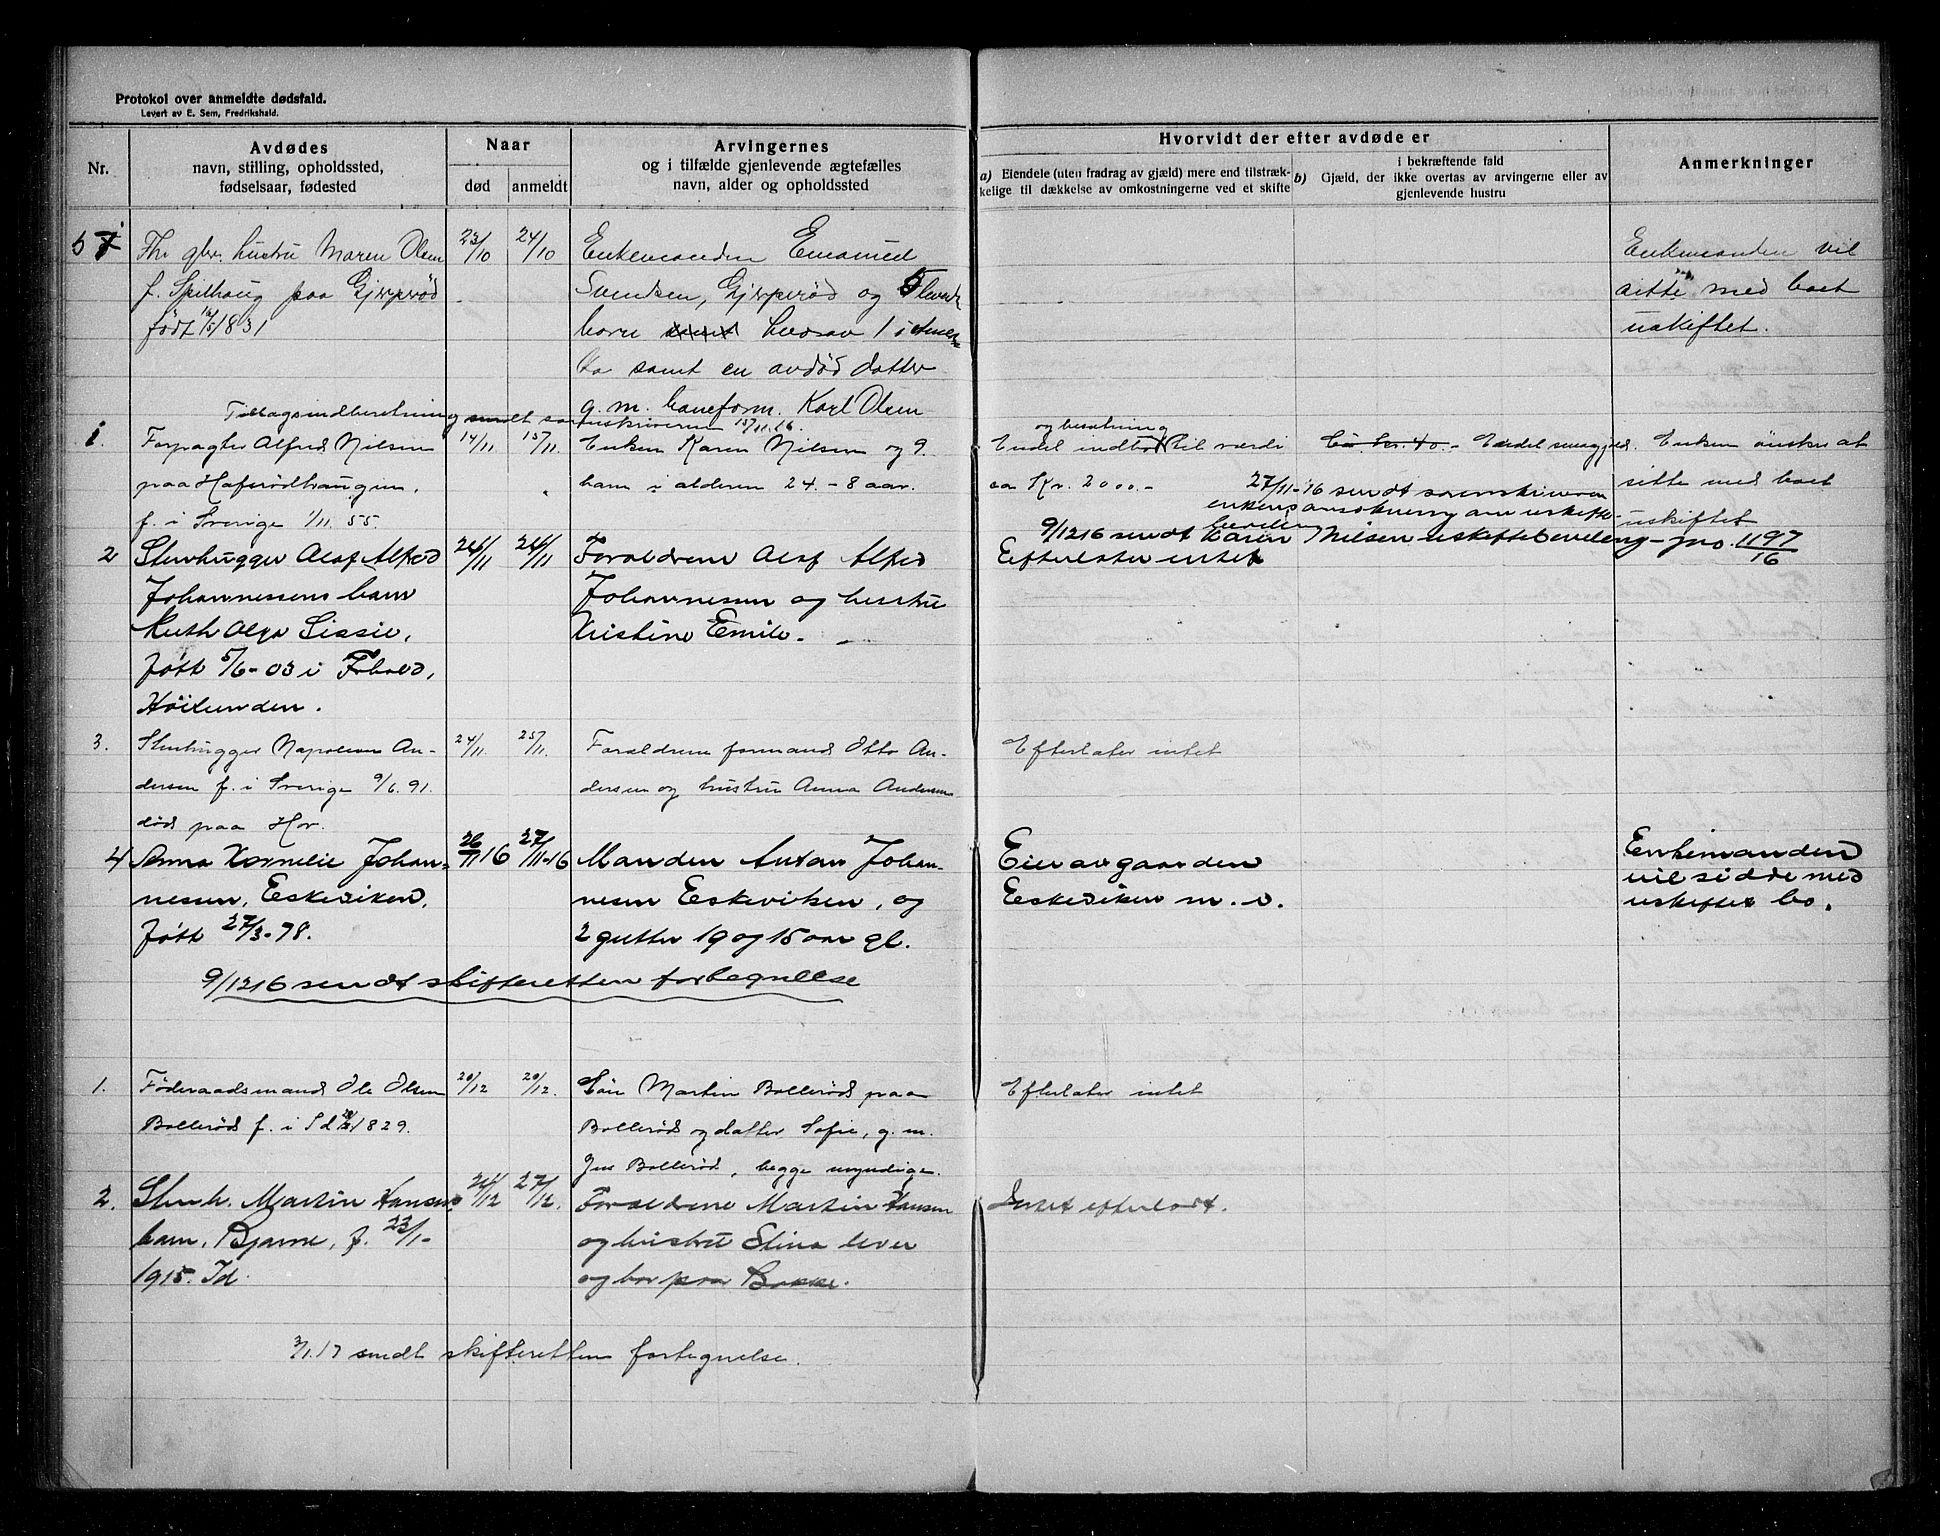 Protokol over anmeldte dødsfald.
Levert av E. Sem, Fredrikshald.
Nr.
Avdødes
navn, stilling, opholdssted,
fødselsaar, fødested
Naar
død
anmeldt
Arvingernes
og i tilfælde gjenlevende ægtefælles
navn, alder og opholdssted
Hvorvidt der efter avdøde er
a) Eiendele (uten fradrag av gjæld) mere end tilstræk-
kelige til dækkelse av omkostningerne ved et skifte
b) i bekræftende fald
Gjæld, der ikke overtas av arvingerne eller av
gjenlevende hustru
Anmerkninger
hustru Maren Olsen
f. Spelhaug paa Gjerperød
født 1831
23/10
24/10
Enkemanden Emanuel
Svendsen, Gjerperød og 5 levende
born hvorav 1 i Ame-
ka samt en avdød datter
g. m. baneform. Karl Olsen
Enkemanden vil
sitte med boet
uskiftet.
Tillægsindberetning sendt sorenskriveren 15/11.16.
1.
Forpagter Alfred Nilsen
paa Hafsrødhaugen,
f. i Sverige 1/11 55.
14/11
15/11.
Enken Karen Nilsen og 9
barn i alderen 24 - 8 aar.
og besætning
Endel indbo til værdi
ca Kr. 2000.-
Ca. kr. 40.- Endel smaagjeld.
Enken ønsker at
sitte med boet
uskiftet
27/11-16 sendt sorenskriveren
enkens ansøkning om uskifte-
bevilling
9/12 16 sendt Karen Nilsen uskiftebevilling - jno. 1197/16
2
Stenhugger Olaf Alfred
Johannessens barn
Ruth Olga Sissie,
født 5/6-03 i F.hald,
Høilunden.
24/11
24/11
Forældrene Olaf Alfred
Johannesen og hustru
Kristine Emilie.
Efterlater intet
3.
Stenhugger Napoleon An-
dersen f. i Sverige 9/6.91.
død paa Hov.
24/11.
25/11.
Forældrene formand Otto An-
dersen og hustru Anna Andersen
Efterlater intet
4
Anna Kornelie Johan-
nesen, Eskeviken,
født 27/3-78.
26/11 16
27/11-16
Manden Anton Johan-
nesen Eskeviken, og
2 gutter 19 og 15 aar gl.
Eier av gaarden
Eskeviken m. v.
Enkemanden
vil sidde med
uskiftet bo.
9/12 16 sendt skifteretten fortegnelse
1.
Føderaadsmand Ole Olsen
Bollerød f. i Id 1829.
20/12
20/12.
Søn Martin Bollerød paa
Bollerød og datter Sofie, g. m.
Jens Bollerød, begge myndige.
Efterlater intet
2.
Stenh. Martin Hansens
barn, Bjarne, f. 23/1-
1915. Id.
24/12
27/12.
Forældrene Martin Hansen
og hustru Stina lever
og bor paa Bakke.
Intet efterladt.
3/1.17 sendt skifteretten fortegnelse.